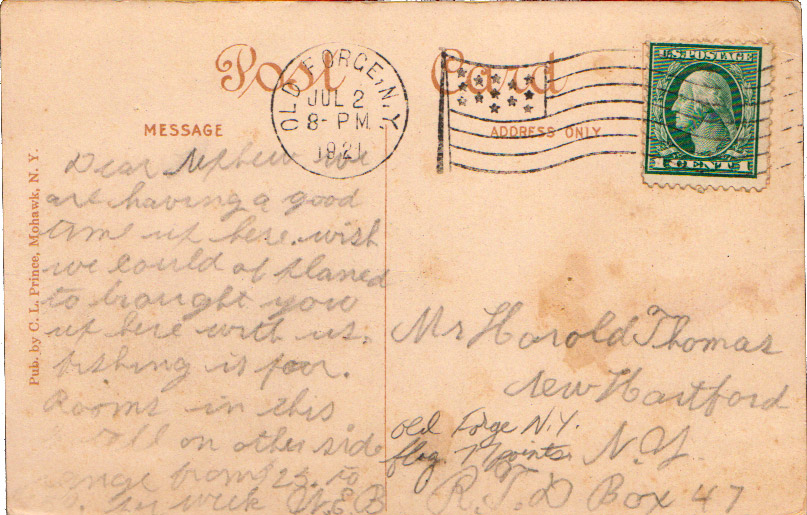 Post Card
OLD FORGE, N.Y.
JUL 2
8-PM
1921
U.S. POSTAGE
1 CENT 1
MESSAGE
ADDRESS ONLY
Pub. by C. L. Prince, Mohawk, N. Y.
Dear Nephew we
are having a good
time up here. wish
we could of planed
to brought you
up here with us.
fishing is poor.
Rooms in this
on other side
range from 25. to
week W.E.B
Mr Harold Thomas
New Hartford
N.Y.
R.F.D Box 47
old Forge N.Y.
flag points